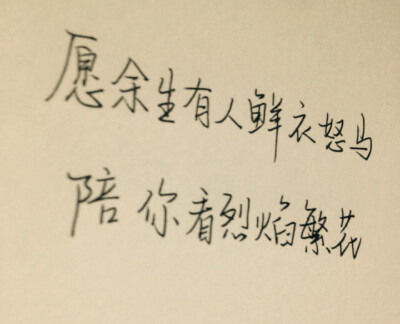 愿余生有人鲜衣怒马
陪你看烈焰繁花